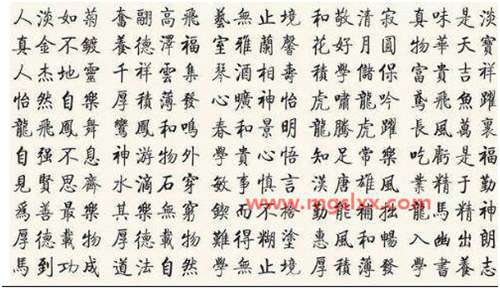 人淡如菊 奮翮高飛 藝無止境 和敬清寂 真味是淡
真金不鍍 養德澤福 室雅蘭馨 花好月圓 物華天寶
人杰地靈 千祥雲集 琴 相壽 學儲 富貴吉祥
怡然自樂 厚積薄發 心曠神怡 虎嘯龍吟 鳶飛魚躍
龍飛鳳舞 鸞鳳和鳴 春和景明 龍騰虎躍 長風萬里
自强不息 神游物外 學貴心悟 知足常樂 吃虧是福
見賢思齊 水滴石穿 敏事慎言 漢唐雄風 業精于勤
爲善最樂 其樂無窮 鍥而不捨 勤能補拙 龍馬精神
厚德載物 厚德載物 難得糊塗 惠風和暢 入幽出朗
馬到功成 道法自然 學無止境 厚積薄發 學書養志
www.mgslxx.com